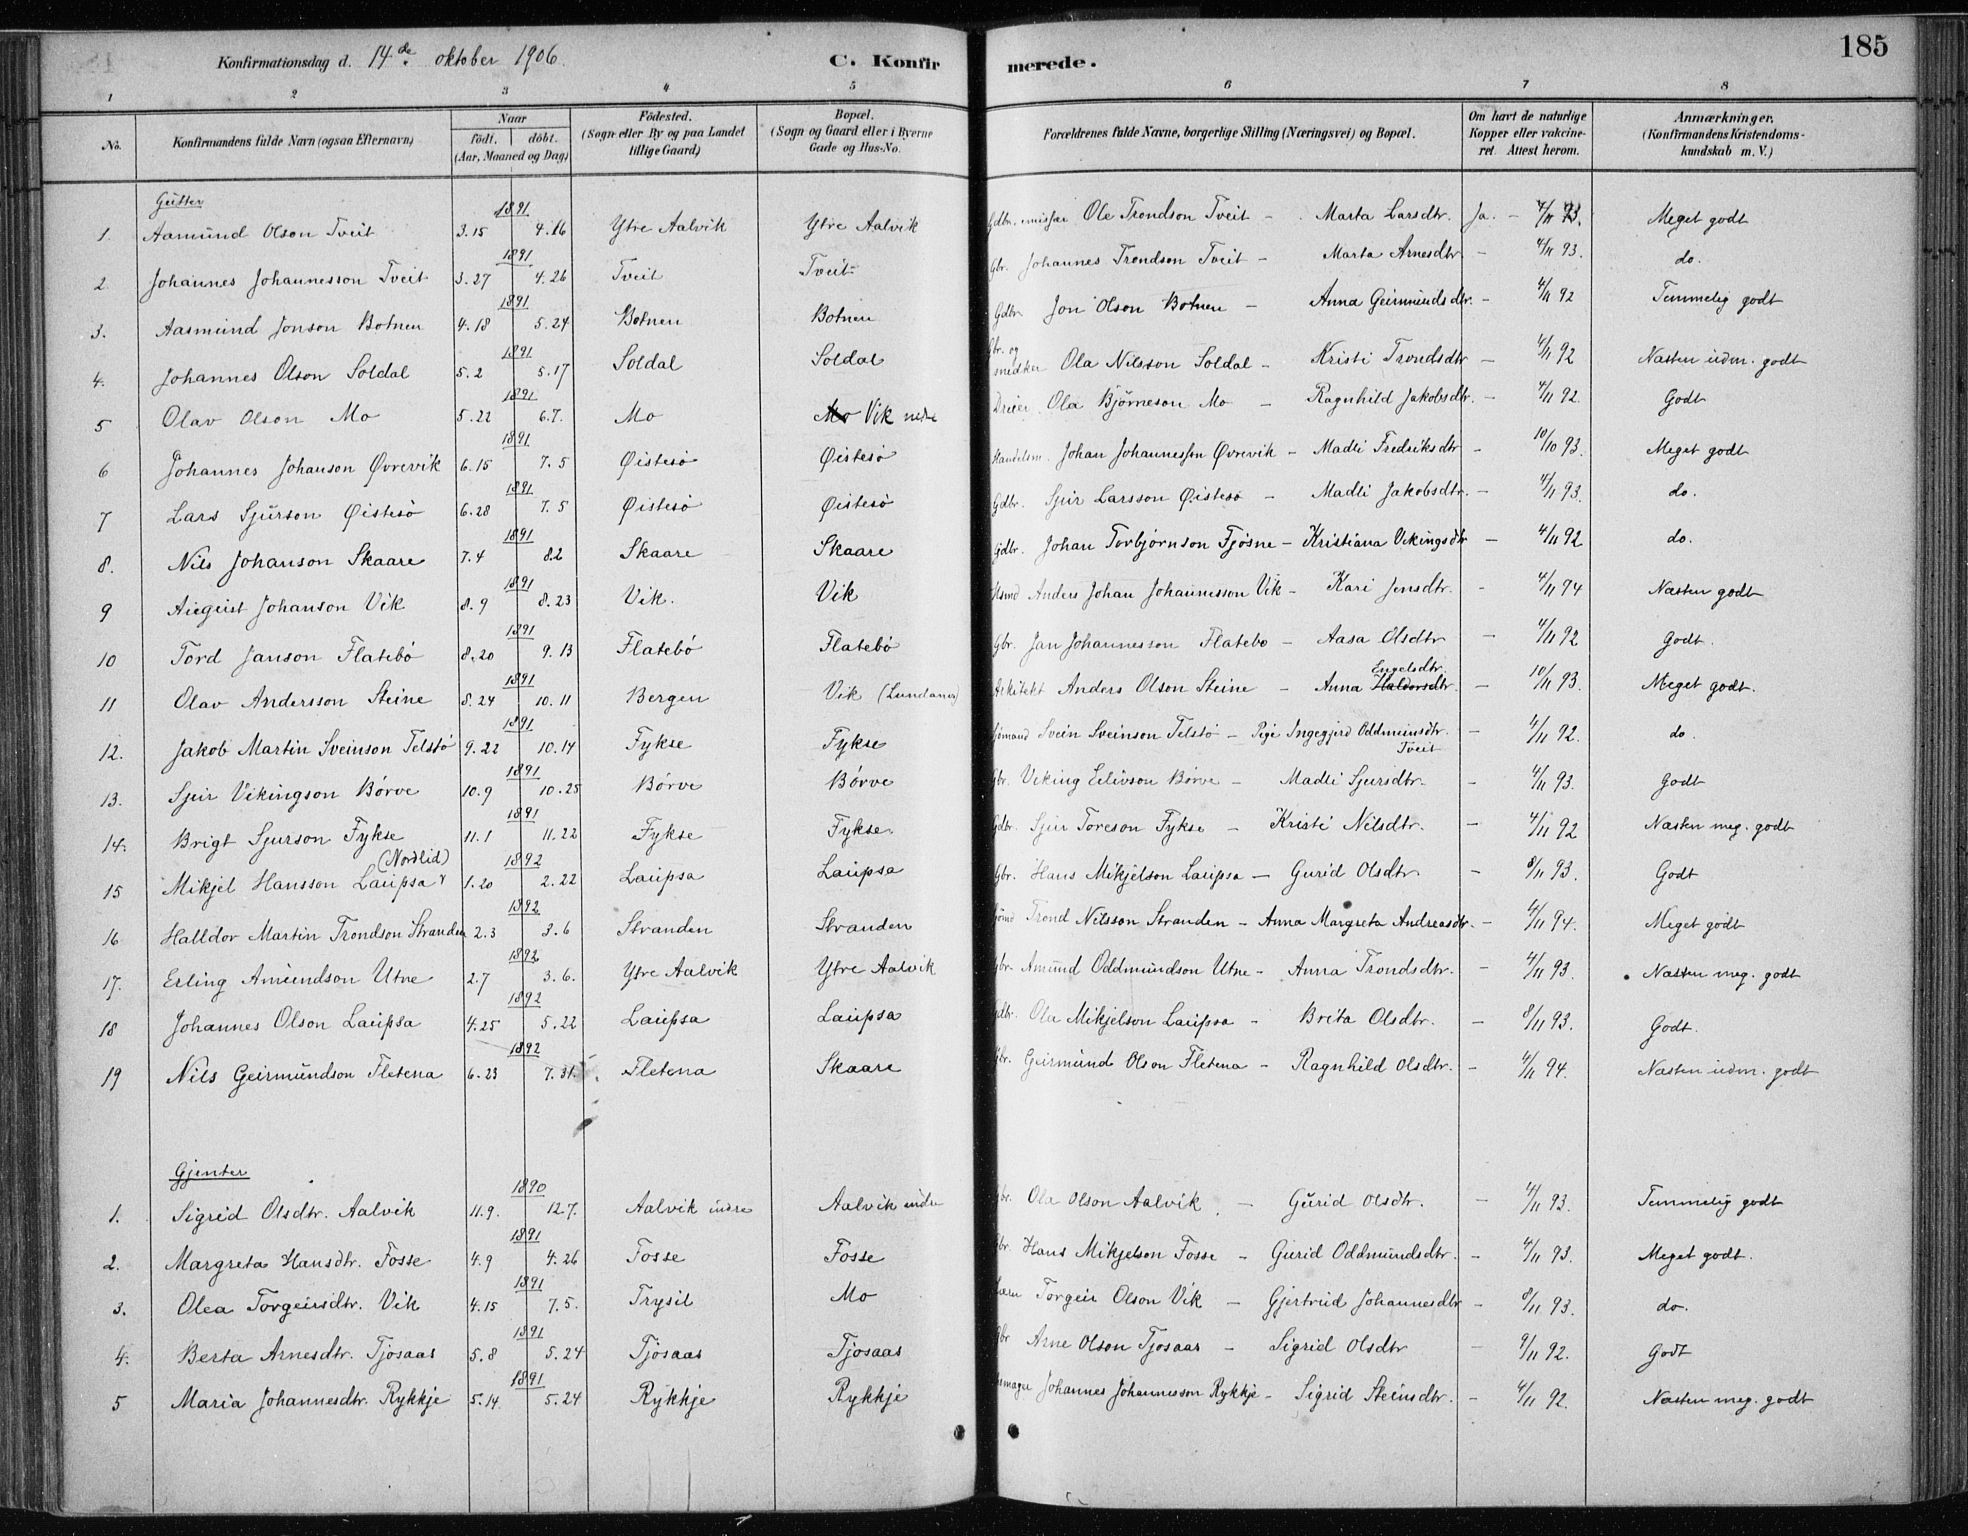 185
Konfirmationsdag d. 14de oktober 1906.
C. Konfirmerede.
1 2 3 4 5 6 7 8
No. Konfirmandens fulde Navn (ogsaa Efternavn) Naar født. døbt. (Aar, Maaned og Dag) Födested. (Sogn eller By og paa Landet tillige Gaard) Bopæl. (Sogn og Gaard eller i Byerne Gade og Hus-No. Forældrenes fulde Navne, borgerlige Stilling (Næringsvei) og Bopæl. Om havt de naturlige Kopper eller vakcineret. Attest herom. Anmærkninger. (Konfirmandens Kristendomskundskab m. V.)
Gutter
1. Aamund Olson Tveit 1891 3.15 4.16 Ytre Aalvik Ytre Aalvik Gdbr. Ole Trondson Tveit - Marta Larsdtr. Ja. - 4/11 93. Meget godt
2. Johannes Johannesson Tveit 1891 3.27 4.26 Tveit Tveit Gbr. Johannes Trondson Tveit - Marta Arnesdtr - 4/11 93. do.
3. Aasmund Jonson Botnen 1891 4.18 5.24 Botnen Botnen Gdbr. Jon Olson Botnen - Anna Geirmundsdtr. - 4/11 92 Temmelig godt
4. Johannes Olson Soldal 1891 5.2 5.17 Soldal Soldal Gbr. og snedker Ola Nilsson Soldal - Kristi Trondsdtr - 4/11 92 Næsten udm. godt
5 Olav Olson Mo 1891 5.22 6.7. Mo Mo Vik nedre Dreier Ola Bjørneson Mo - Ragnhild Jakobsdtr. - 4/11 92. Godt
6 Johannes Johanson Øvrevik 1891 6.15 7.5 Øistesø Øistesø Handelsm. Johan Johannesson Øvrevik - Madli Fredriksdtr - 10/10 93. Meget godt
7 Lars Sjurson Øistesø 1891 6.28 7.5 Øistesø Øistesø Gdbr. Sjur Larsson Øistesø - Madli Jakobsdtr. - 4/11 93. do.
8. Nils Johanson Skaare 1891 7.4 8.2 Skaare Skaare Gdbr. Johan Torbjørnson Fjøsne - Kristiana Vikingsdtr - 4/11 92 do.
9 Johanson Vik 1891 8.9 8.23 Vik. Vik Husmd Anders Johan Johannesson Vik - Kari Jensdtr. - 4/11 94 Næsten godt
10 Tord Janson Flatebø 1891 8.20 9.13 Flatebø Flatebø Gbr. Jan Johannesson Flatebø - Aasa Olsdtr - 4/11 92 Godt.
11 Olav Andersson Steine 1891 8.24 10.11 Bergen Vik (Lundanes) Arkitekt Anders Olson Steine - Anna Haldorsdtr. Engelsdtr. - 10/11 93. Meget godt.
12. Jakob Martin Sveinson Telstø 1891 9.22 10.14 Fykse Fykse Sømand Svein Sveinson Telstø - Pige Ingegjerd Oddmundsdtr. Tveit - 4/11 92. do.
13. Sjur Vikingson Børve 1891 10.9 10.25 Børve Børve Gbr. Viking Eilivson Børve - Madli Sjursdtr. - 4/11 93. Godt
14. Brigt Sjurson Fykse 1891 11.1 11.22 Fykse Fykse. Gdbr. Sjur Toreson Fykse - Kristi Nilsdtr. - 4/11 92 Næsten meg. godt
15 Mikjel Hansson Laupsa (Nordlid) 1892 1.20 2.22 Laupsa Laupsa Gbr. Hans Mikjelson Laupsa - Gurid Olsdtr. - 8/11 93. Godt
16 Halldor Martin Trondson Stranden 1892 2.3 3.6 Stranden Stranden Sømd Trond Nilsson Stranden - Anna Margreta Andreasdtr. - 4/11 94. Meget godt
17. Erling Amundson Utne 1892 2.7 3.6. Ytre Aalvik Ytre Aalvik Gbr. Amund Oddmundson Utne - Anna Trondsdtr. - 4/11 93. Næsten meg. godt
18 Johannes Olson Laupsa 1892 4.25 5.22 Laupsa Laupsa Gdbr. Ola Mikjelson Laupsa - Brita Olsdtr. - 8/11 93. Godt.
19 Nils Geirmundson Fletena 1892 6.23 7.31. Fletena Skaare Gbr. Geirmund Olson Fletena - Ragnhild Olsdtr. - 4/11 94. Næsten udm. godt
Gjenter
1. Sigrid Olsdtr. Aalvik 1890 11.9. 12.7. Aalvik indre Aalvik indre Gbr. Ola Olson Aalvik - Gurid Olsdtr. - 4/11 93. Temmelig godt
2. Margreta Hansdtr. Fosse 1891 4.9 4.26 Fosse Fosse Gbr. Hans Mikjelson Fosse - Gurid Oddmundsdtr. - 4/11 93. Meget godt.
3. Olea Torgeirsdtr. Vik 1891 4.15 7.5. Trysil Mo Torgeir Olson Vik - Gjertrud Johannesdtr - 8/11 93. do.
4. Berta Arnesdtr. Tjosaas 1891 5.8 5.24 Tjosaas Tjosaas Gbr Arne Olson Tjosaas - Sigrid Olsdtr - 9/11 92. Godt
5 Maria Johannesdtr. Rykkje 1891 5.14. 5.24 Rykkje Rykkje Johannes Johannesson Rykkje - Sigrid Steinsdtr. - 4/11 92. Næsten meg. godt